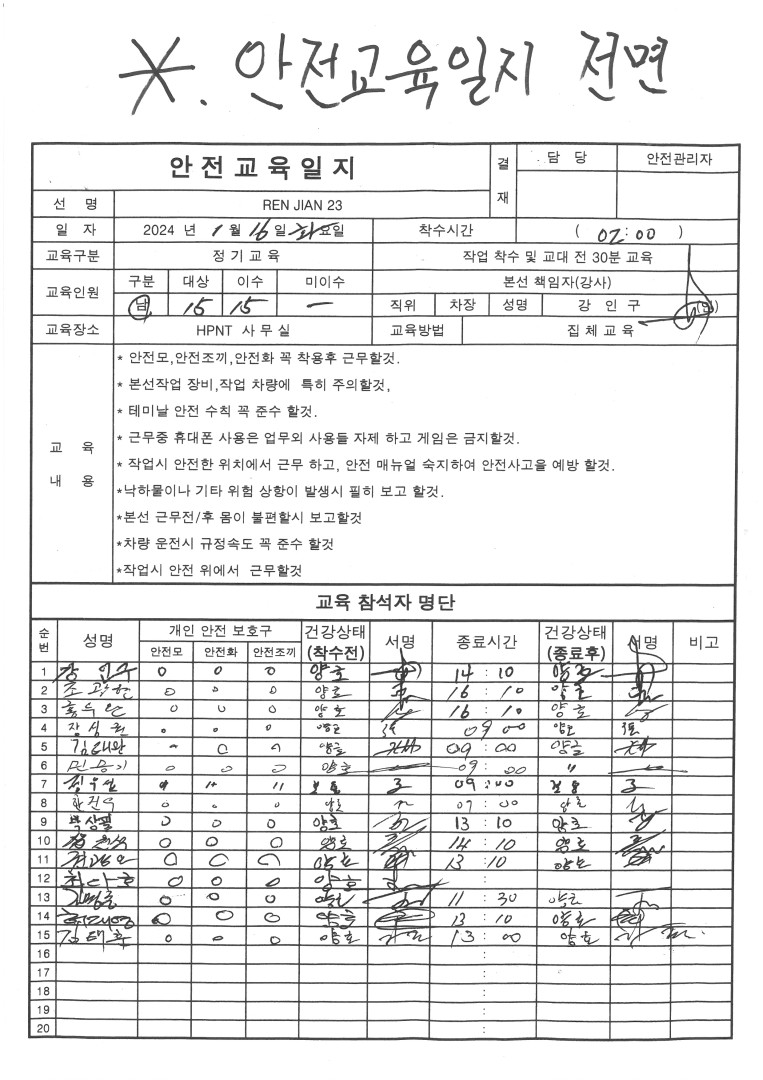 *. 안전교육일지 전면
안전교육일지
결재
담 당
안전관리자
선 명
REN JIAN 23
일 자
2024 년 1 월 16 일 화요일
착수시간
( 02:00 )
교육구분
정기교육
작업 착수 및 교대 전 30분 교육
교육인원
구분 대상 이수 미이수
본선 책임자(강사)
남 15 15 —
직위 차장 성명 강 인 구 (인)
교육장소
HPNT 사무실
교육방법
집체교육
교 육
내 용
* 안전모,안전조끼,안전화 꼭 착용후 근무할것.
* 본선작업 장비,작업 차량에 특히 주의할것,
* 테미날 안전 수칙 꼭 준수 할것.
* 근무중 휴대폰 사용은 업무외 사용들 자제 하고 게임은 금지할것.
* 작업시 안전한 위치에서 근무 하고, 안전 매뉴얼 숙지하여 안전사고을 예방 할것.
*낙하물이나 기타 위험 상항이 발생시 필히 보고 할것.
*본선 근무전/후 몸이 불편할시 보고할것
*차량 운전시 규정속도 꼭 준수 할것
*작업시 안전 위에서 근무할것
교육 참석자 명단
순번 성명 개인 안전 보호구 건강상태 (착수전) 서명 종료시간 건강상태 (종료후) 서명 비고
안전모 안전화 안전조끼
1 강인구 o o o 양호 14 : 10 양호
2 o o o 양호 16 : 10 양호
3 o o o 양호 16 : 10 양호
4 o o o 양호 09 00 양호
5 o o 양호 09 : 00 양호
6 o o o 양호 09 : 00 "
7 09 : 00
8 o o o 양호 : 00 양호
9 박상필 o o o 양호 13 : 10 양호
10 o o o 양호 14 : 10 양호
11 o o o 양호 13 : 10 양호
12 o o o 양호 :
13 o o o 11 : 30 양호
14 o o o 양호 13 : 10 양호
15 김태훈 o o o 양호 13 : 00 양호
16 :
17 :
18 :
19 :
20 :